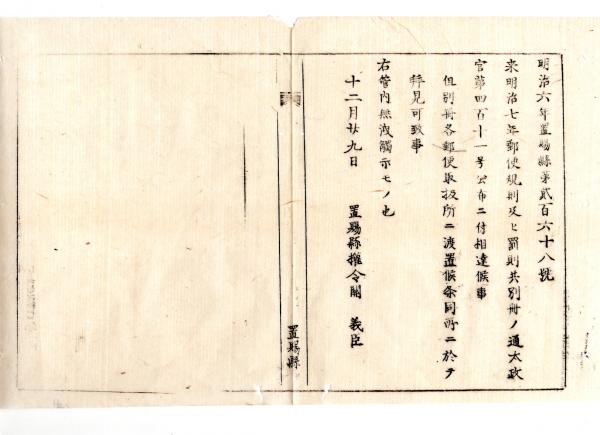 明治六年置賜縣第貳百六十八號
来明治七年郵便規則及ヒ罰則共別冊ノ通太政
官第四百十一号公布ニ付相達候事
但別冊各郵便取扱所ニ渡置候条同所ニ於テ
拝見可致事
右管内無洩觸示モノ也
十二月廿九日 置賜縣権令関 義臣
置賜縣